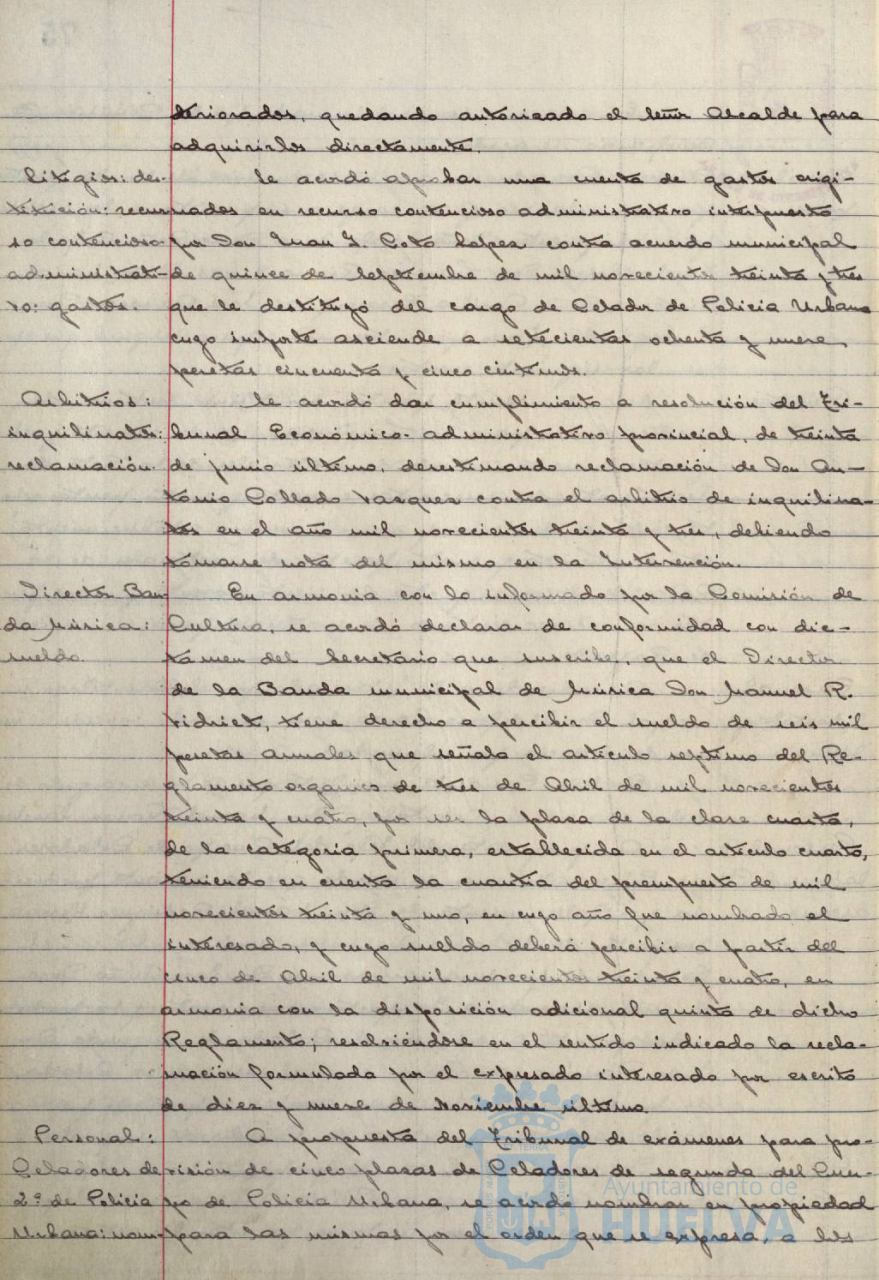 teriorados, quedando autorizado el Señor Alcalde para
adquirirlos directamente.
Litigios: des-
titución: recur
so contencioso-
administrati-
vo: gastos.
Se acordó aprobar una cuenta de gastos origi-
nados en recurso contencioso administrativo interpuesto
por Don Juan J. Coto Lopez contra acuerdo municipal
de quince de Septiembre de mil novecientos treinta y tres
que le destituyó del cargo de Celador de Policia Urbana
cuyo importe asciende a setecientas ochenta y nueve,
pesetas cincuenta y cinco céntimos.
Arbitrios:
inquilinatos:
reclamación.
Se acordó dar cumplimiento a resolución del Tri-
bunal Económico-administrativo provincial, de treinta
de junio último, desestimando reclamación de Don An-
tonio Collado Vazquez contra el arbitrio de inquilina-
tos en el año mil novecientos treinta y tres, debiendo
tomarse nota del mismo en la Intervención.
Director Ban
da Música:
sueldo.
En armonia con lo informado por la Comisión de
Cultura, se acordó declarar de conformidad con dic-
támen del Secretario que suscribe, que el Director
de la Banda municipal de Música Don Manuel R.
Vidriet, tiene derecho a percibir el sueldo de seis mil
pesetas anuales que señala el artículo septimo del Re-
glamento organico de tres de Abril de mil novecientos
treinta y cuatro, por ser la plaza de la clase cuarta,
de la categoria primera, establecida en el artículo cuarto,
teniendo en cuenta la cuantia del presupuesto de mil
novecientos treinta y uno, en cuyo año fue nombrado el
interesado, y cuyo sueldo deberá percibir a partir del
cinco de Abril de mil novecientos treinta y cuatro, en
armonia con la disposición adicional quinta de dicho
Reglamento; resolviéndose en el sentido indicado la recla-
mación formulada por el expresado interesado por escrito
de diez y nueve de Noviembre último.
Personal:
Celadores de
2ª de Policia
Urbana: nom-
A propuesta del Tribunal de exámenes para pro-
visión de cinco plazas de Celadores de segunda del Cuer-
po de Policia Urbana, se acordó nombrar en propiedad
para las mismas por el orden que se expresa, a los
Ayuntamiento de
HUELVA